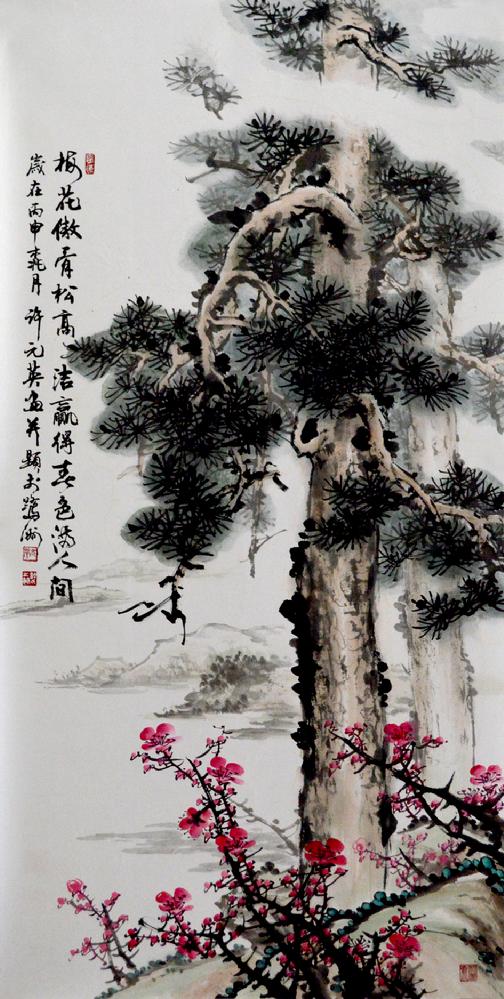 梅花傲骨松高洁赢得春色满人间
岁在丙申桃月许元英画并题于鹭州